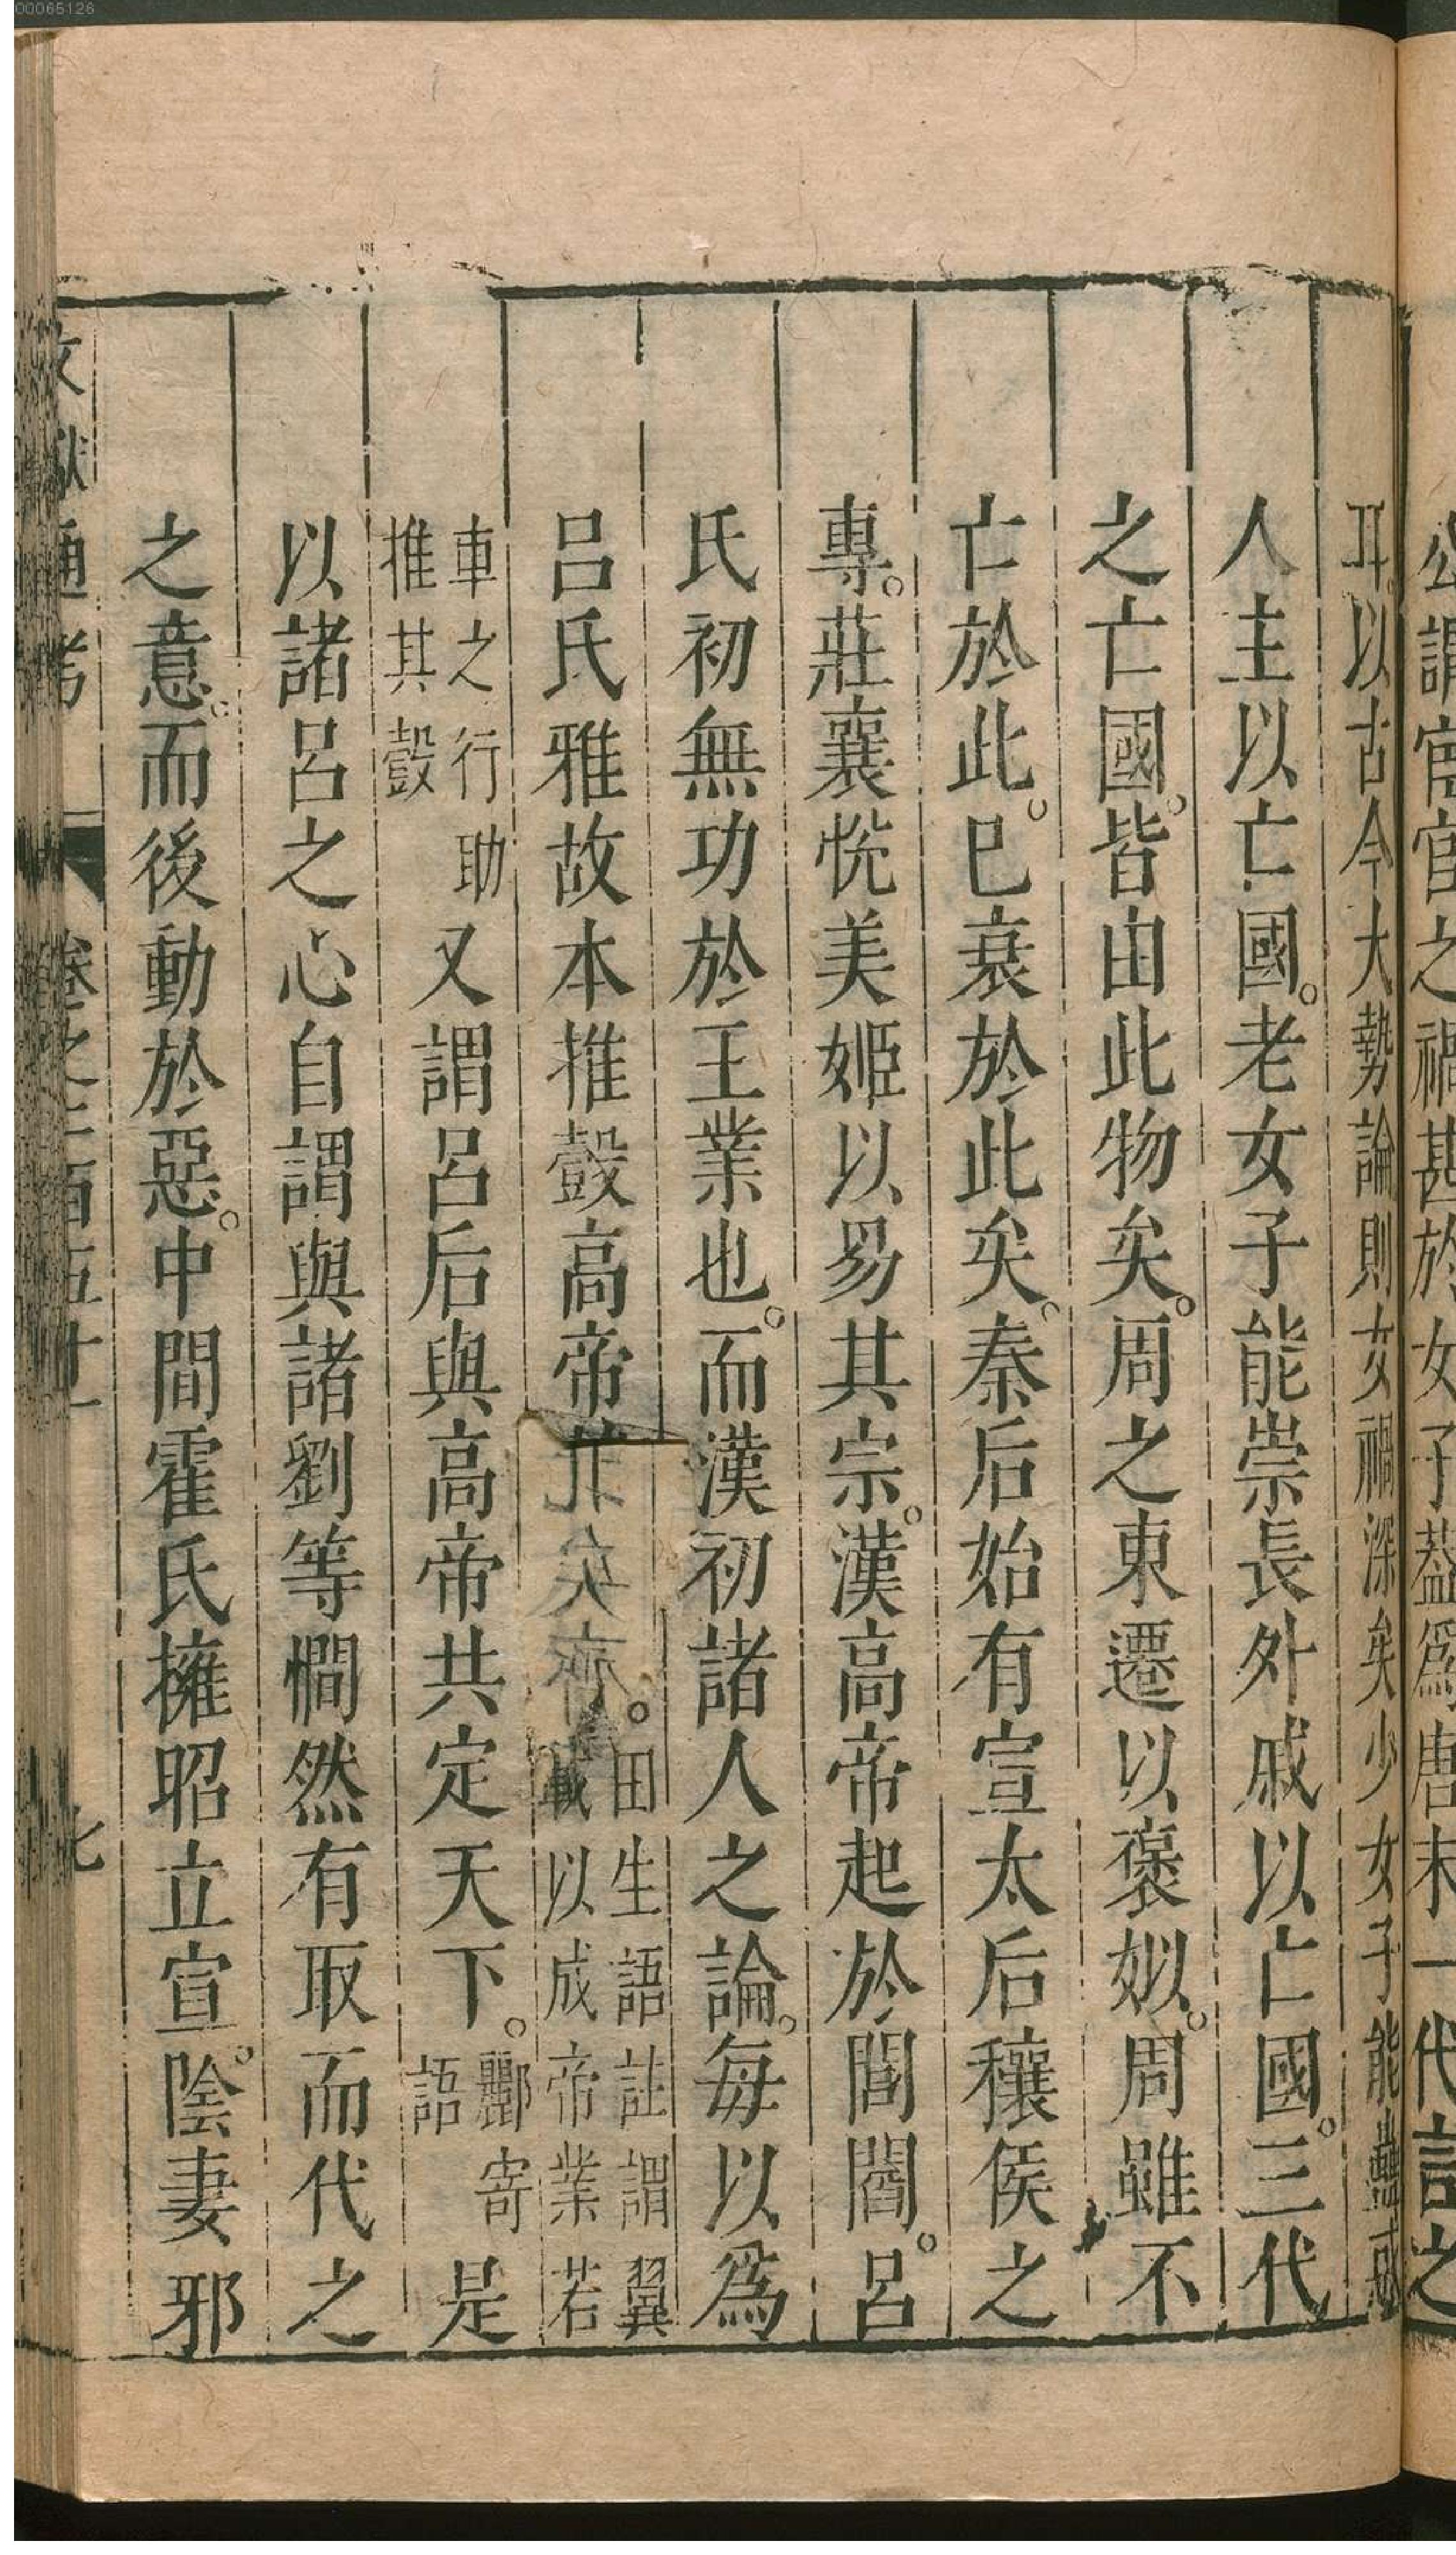 公謂宦官之禍甚於女子葢爲唐末一代言之
耳。以古今大勢論則女禍深矣少女子能蠱惑
人主以亡國。老女子能崇長外戚以亡國。三代
之亡國。皆由此物矣。周之東遷以褒姒。周雖不
亡於此。已衰於此矣。秦后始有宣太后穰侯之
專。莊襄恱美姬以易其宗。漢高帝起於閭閻。呂
氏初無功於王業也。而漢初諸人之論。每以爲
呂氏雅故本推轂高帝
。田生語註謂翼
戴以成帝業若
車之行助
推其轂
又謂呂后與高帝共定天下。酈寄語是
以諸呂之心自謂與諸劉等憪然有取而代之
之意。而後動於惡。中間霍氏擁昭立宣。陰妻邪
文獻通考
卷之二百五十
七
00065126